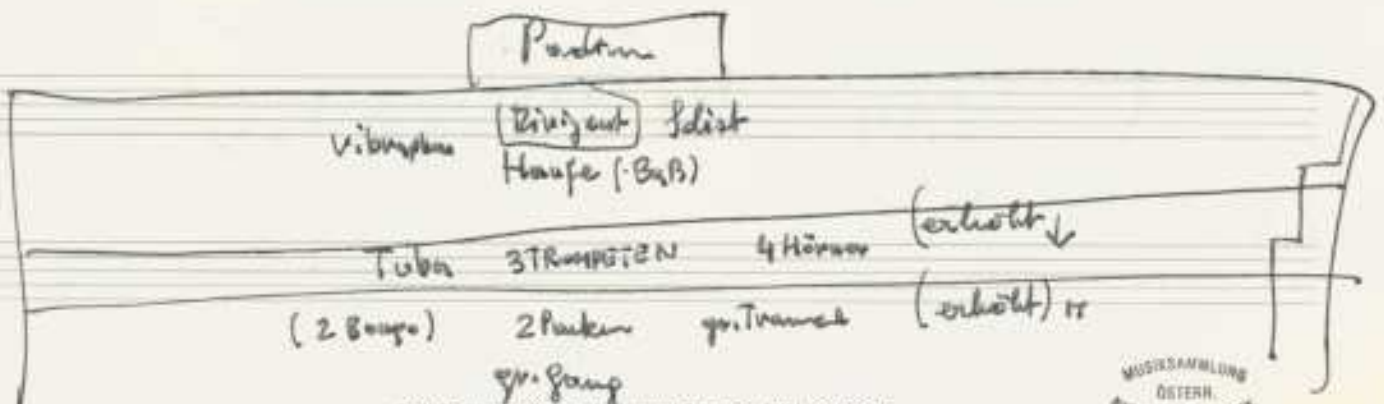 Podium
Vibraphon (Dirigent) Solist
Harfe (-Baß)
Tuba 3 TROMPETEN 4 Hörner (erhöht ↓
(2 Bongo) 2 Pauken gr. Trommel (erhöht)
gr. Gong
MUSIKSAMMLUNG
ÖSTERR.